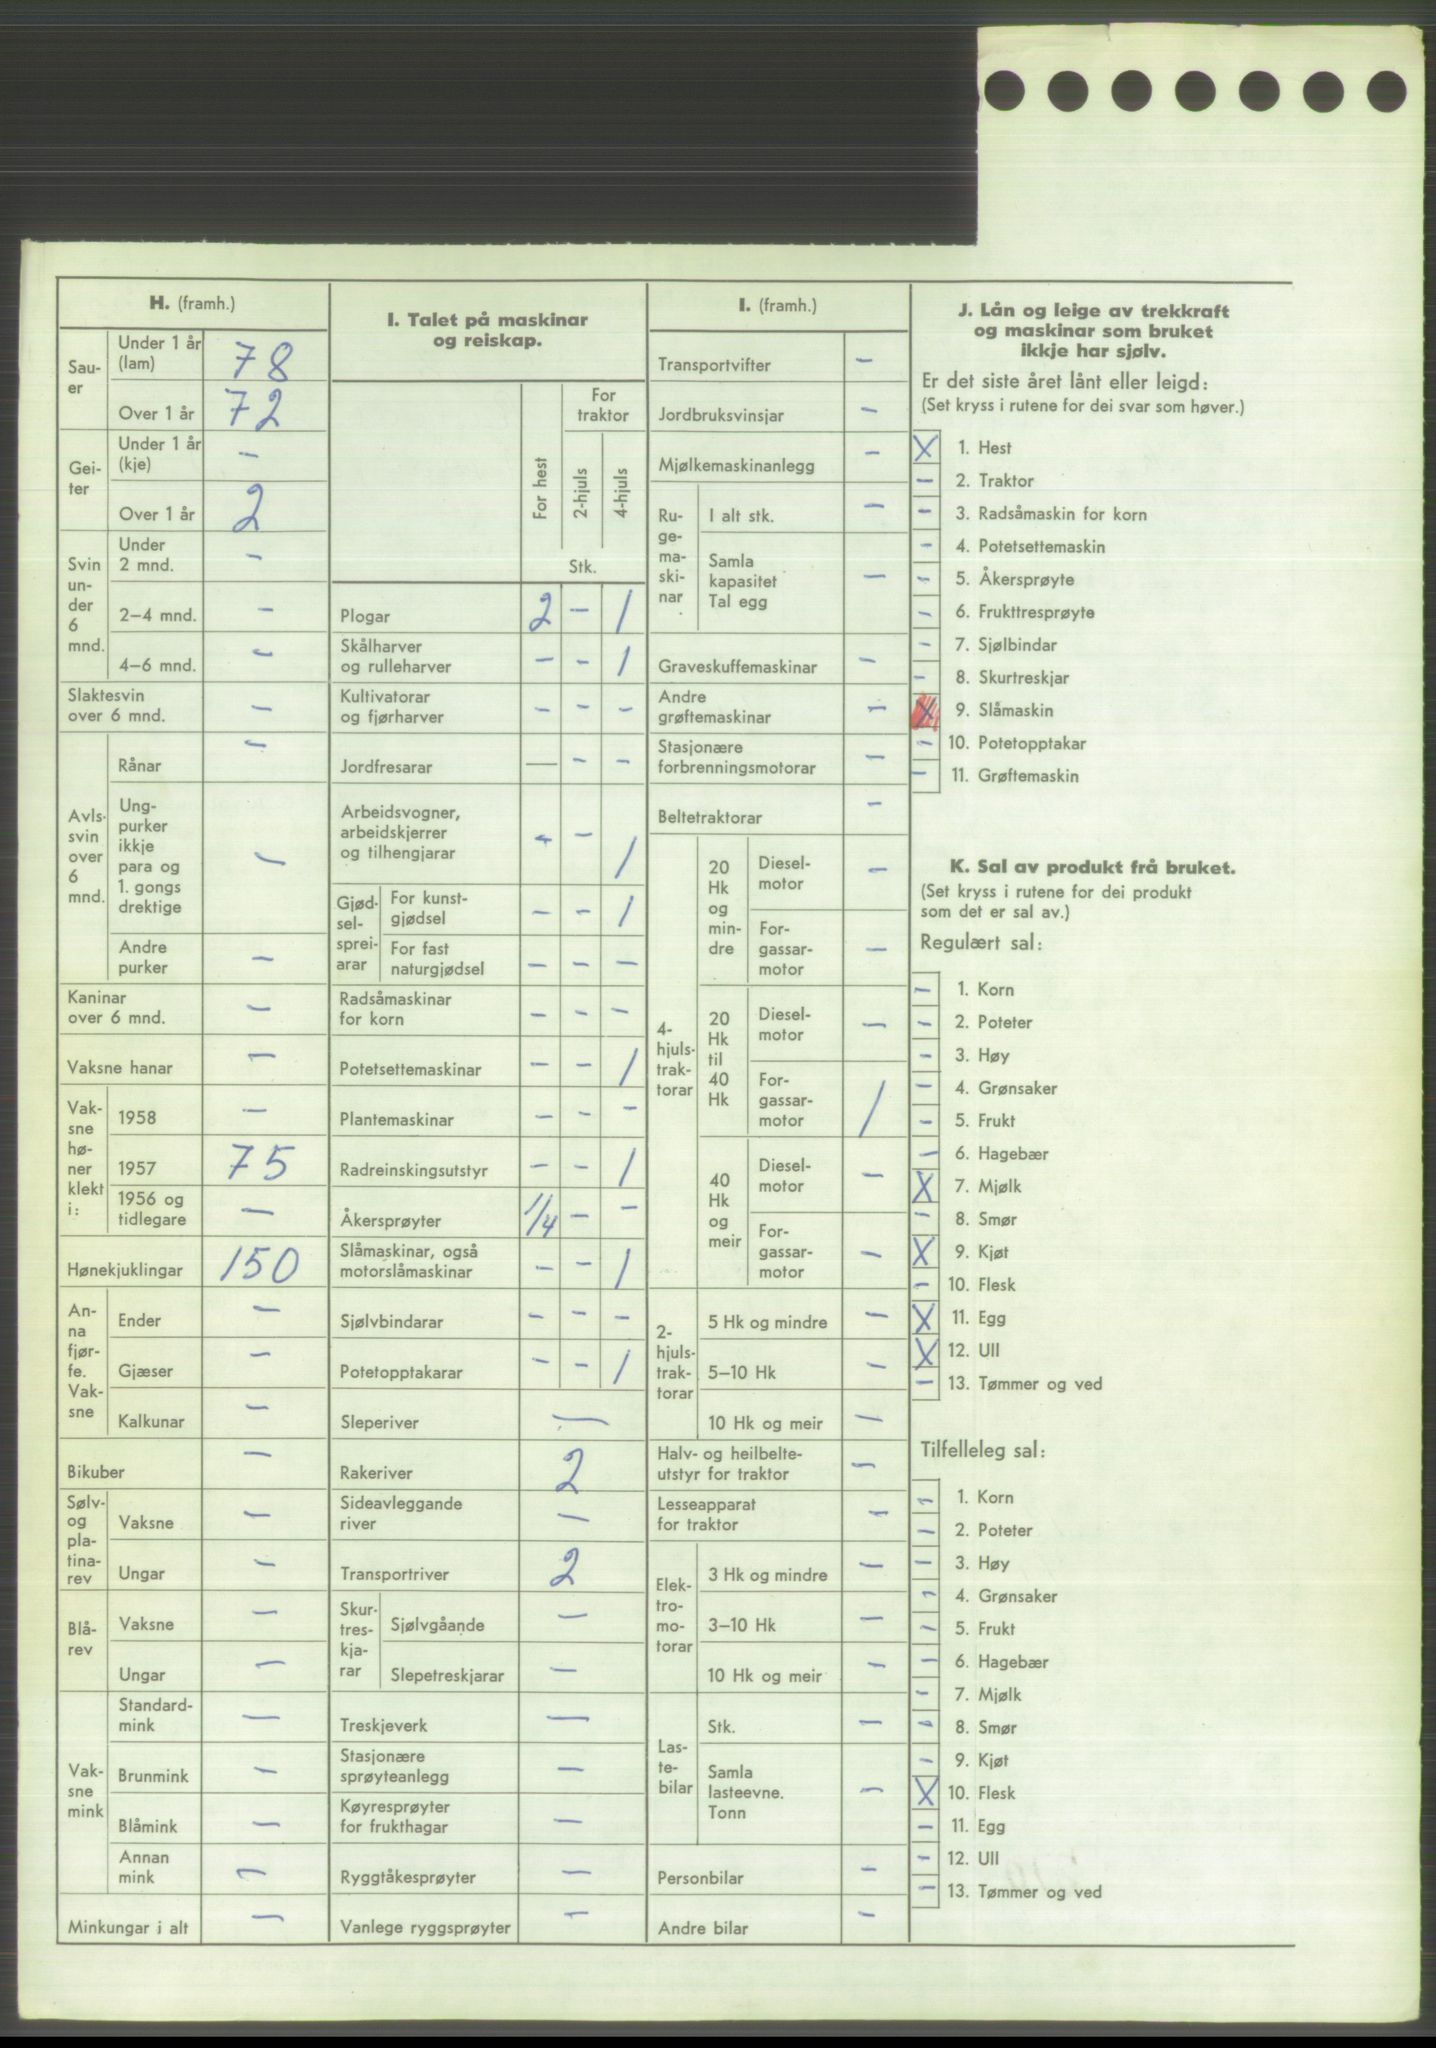 H. (framh.)
Sau-
er
Under 1 år
(lam) 78
Over 1 år 72
Gei-
ter
Under 1 år
(kje) –
Over 1 år 2
Svin
un-
der
6
mnd.
Under
2 mnd. –
2–4 mnd. –
4–6 mnd. –
Slaktesvin
over 6 mnd. –
Avls-
svin
over
6
mnd.
Rånar –
Ung-
purker
ikkje
para og
1. gongs
drektige –
Andre
purker –
Kaninar
over 6 mnd. –
Vaksne hanar –
Vak-
sne
hø-
ner
klekt
i:
1958 –
1957 75
1956 og
tidlegare –
Hønekjuklingar 150
An-
na
fjør-
fe.
Vak-
sne
Ender –
Gjæser –
Kalkunar –
Bikuber –
Sølv-
og
pla-
tina-
rev
Vaksne –
Ungar –
Blå-
rev
Vaksne –
Ungar –
Vak-
sne
mink
Standard-
mink –
Brunmink –
Blåmink –
Annan
mink –
Minkungar i alt –
I. Talet på maskinar
og reiskap.
For hest
For
traktor
2-hjuls
4-hjuls
Stk.
Plogar 2 – 1
Skålharver
og rulleharver – – 1
Kultivatorar
og fjørharver – – –
Jordfresarar — – –
Arbeidsvogner,
arbeidskjerrer
og tilhengjarar – – 1
Gjød-
sel-
sprei-
arar
For kunst-
gjødsel – – 1
For fast
naturgjødsel – – –
Radsåmaskinar
for korn – – –
Potetsettemaskinar – – 1
Plantemaskinar – – –
Radreinskingsutstyr – – 1
Åkersprøyter 1/4 – –
Slåmaskinar, også
motorslåmaskinar – – 1
Sjølvbindarar – – –
Potetopptakarar – – 1
Sleperiver –
Rakeriver 2
Sideavleggande
river –
Transportriver 2
Skur-
tres-
kja-
rar
Sjølvgåande –
Slepetreskjarar –
Treskjeverk –
Stasjonære
sprøyteanlegg –
Køyresprøyter
for frukthagar –
Ryggtåkesprøyter –
Vanlege ryggsprøyter –
I. (framh.)
Transportvifter –
Jordbruksvinsjar –
Mjølkemaskinanlegg –
Ru-
ge-
ma-
ski-
nar
I alt stk. –
Samla
kapasitet
Tal egg –
Graveskuffemaskinar –
Andre
grøftemaskinar –
Stasjonære
forbrenningsmotorar –
Beltetraktorar –
4-
hjuls-
trak-
torar
20
Hk
og
min-
dre
Diesel-
motor –
For-
gassar-
motor –
20
Hk
til
40
Hk
Diesel-
motor –
For-
gassar-
motor 1
40
Hk
og
meir
Diesel-
motor –
For-
gassar-
motor –
2-
hjuls-
trak-
torar
5 Hk og mindre –
5–10 Hk –
10 Hk og meir –
Halv- og heilbelte-
utstyr for traktor –
Lesseapparat
for traktor –
Elek-
tro-
mo-
torar
3 Hk og mindre –
3–10 Hk –
10 Hk og meir –
Las-
te-
bilar
Stk. –
Samla
lasteevne.
Tonn –
Personbilar –
Andre bilar –
J. Lån og leige av trekkraft
og maskinar som bruket
ikkje har sjølv.
Er det siste året lånt eller leigd:
(Set kryss i rutene for dei svar som høver.)
X 1. Hest
– 2. Traktor
– 3. Radsåmaskin for korn
– 4. Potetsettemaskin
– 5. Åkersprøyte
– 6. Frukttresprøyte
– 7. Sjølbindar
– 8. Skurtreskjar
X 9. Slåmaskin
– 10. Potetopptakar
– 11. Grøftemaskin
K. Sal av produkt frå bruket.
(Set kryss i rutene for dei produkt
som det er sal av.)
Regulært sal:
– 1. Korn
– 2. Poteter
– 3. Høy
– 4. Grønsaker
– 5. Frukt
– 6. Hagebær
X 7. Mjølk
– 8. Smør
X 9. Kjøt
– 10. Flesk
X 11. Egg
X 12. Ull
– 13. Tømmer og ved
Tilfelleleg sal:
– 1. Korn
– 2. Poteter
– 3. Høy
– 4. Grønsaker
– 5. Frukt
– 6. Hagebær
– 7. Mjølk
– 8. Smør
– 9. Kjøt
X 10. Flesk
– 11. Egg
– 12. Ull
– 13. Tømmer og ved